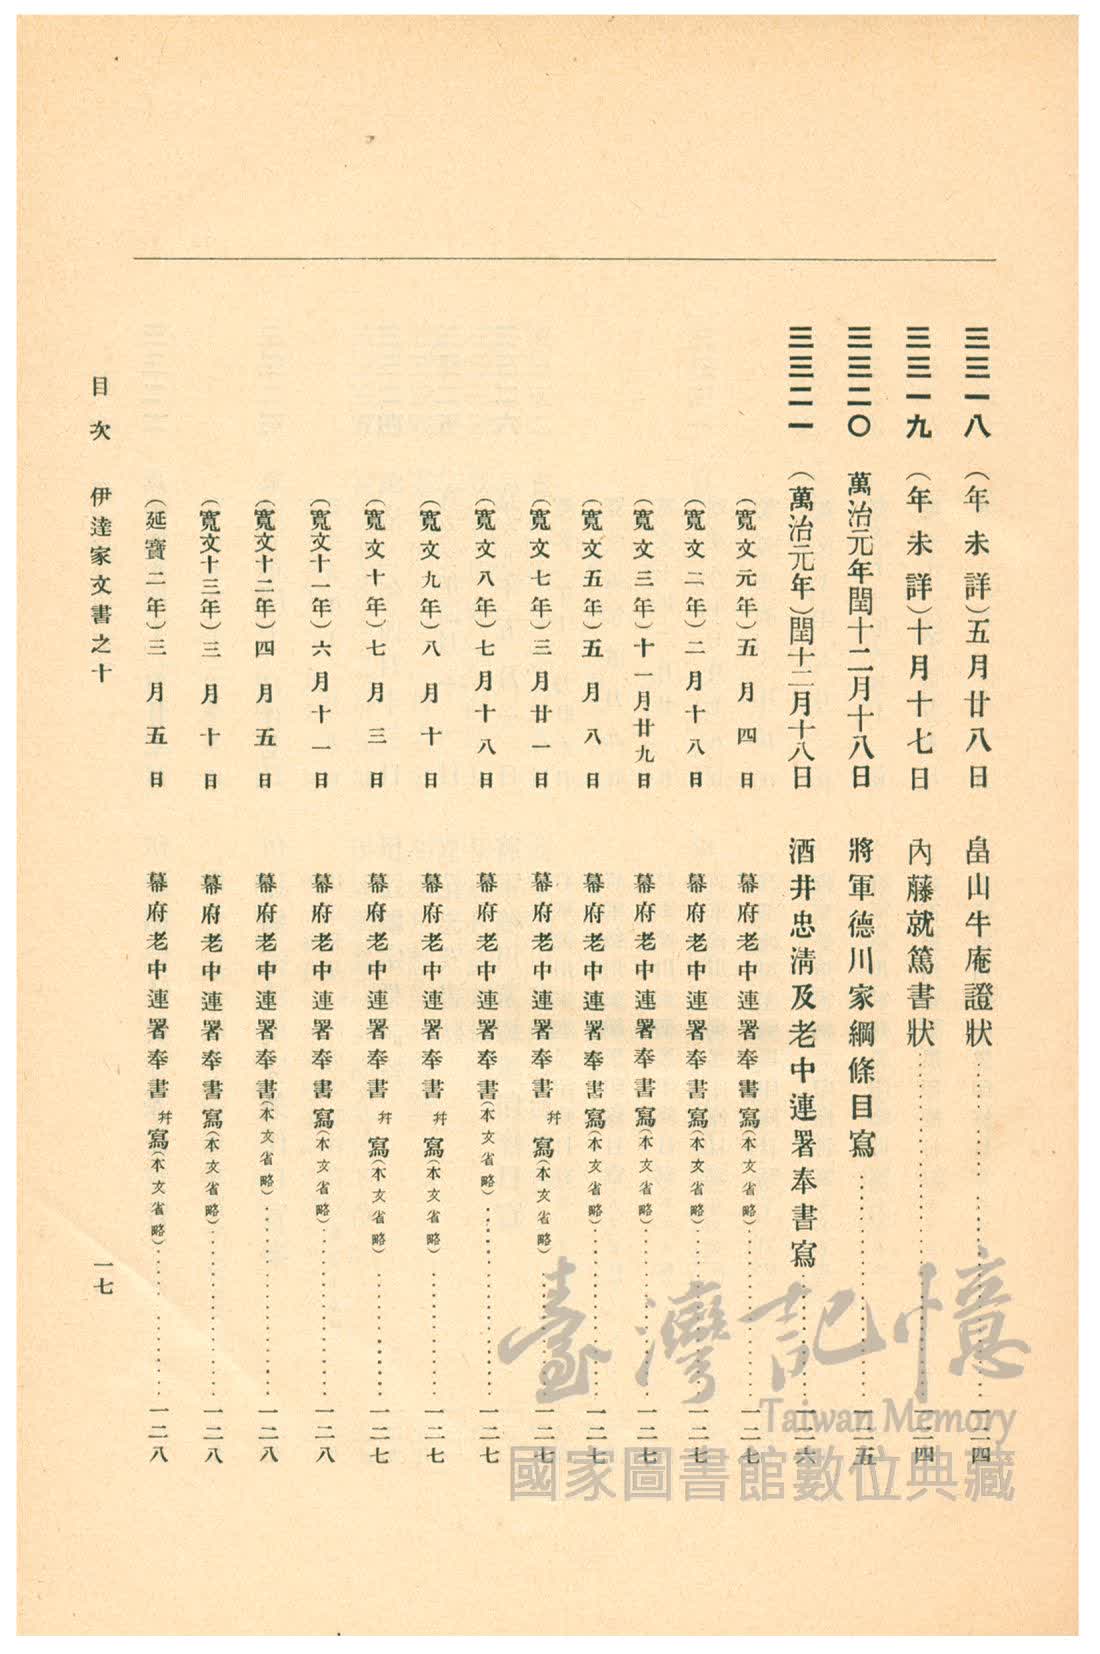 三三一八 (年未詳)五月廿八日 畠山牛庵證狀……一二四
三三一九 (年未詳)十月十七日 內藤就篤書狀……一二四
三三二〇 萬治元年閏十二月十八日 將軍德川家綱條目寫……一二五
三三二一 (萬治元年)閏十二月十八日 酒井忠淸及老中連署奉書寫……一二六
(寬文元年)五月四日 幕府老中連署奉書寫(本文省略)……一二七
(寬文二年)二月十八日 幕府老中連署奉書寫(本文省略)……一二七
(寬文三年)十一月廿九日 幕府老中連署奉書寫(本文省略)……一二七
(寬文五年)五月八日 幕府老中連署奉書寫(本文省略)……一二七
(寬文七年)三月廿一日 幕府老中連署奉書幷寫(本文省略)……一二七
(寬文八年)七月十八日 幕府老中連署奉書(本文省略)……一二七
(寬文九年)八月十日 幕府老中連署奉書幷寫(本文省略)……一二七
(寬文十年)七月三日 幕府老中連署奉書幷寫(本文省略)……一二七
(寬文十一年)六月十一日 幕府老中連署奉書寫(本文省略)……一二八
(寬文十二年)四月五日 幕府老中連署奉書(本文省略)……一二八
(寬文十三年)三月十日 幕府老中連署奉書寫(本文省略)……一二八
(延寶二年)三月五日 幕府老中連署奉書幷寫(本文省略)……一二八
目次 伊達家文書之十 一七
臺灣記憶
Taiwan Memory
國家圖書館數位典藏